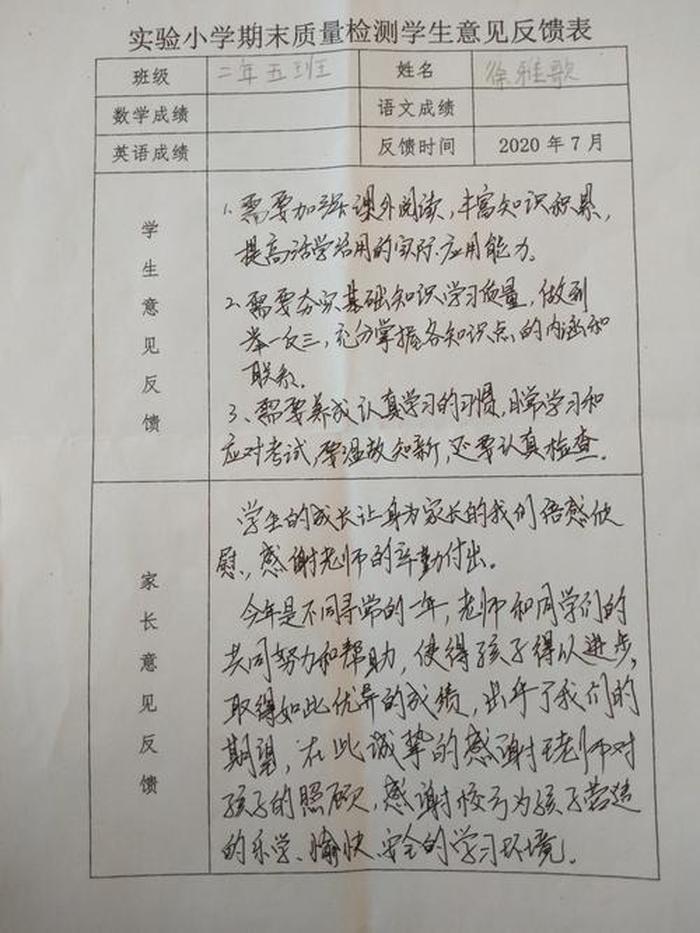 实验小学期末质量检测学生意见反馈表
班级 二年五班 姓名 徐雅歌
数学成绩 语文成绩
英语成绩 反馈时间 2020年7月
学生意见反馈
1、需要加强课外阅读，丰富知识积累，
提高活学活用的实际应用能力。
2、需要夯实基础知识学习质量，做到
举一反三，充分掌握各知识点的内涵和
联系。
3、需要养成认真学习的习惯，日常学习和
应对考试，要温故知新，还要认真检查。
家长意见反馈
学生的成长让身为家长的我们倍感欣
慰，感谢老师的辛勤付出。
今年是不同寻常的一年，老师和同学们的
共同努力和帮助，使得孩子得以进步，
取得如此优异的成绩，出乎了我们的
期望，在此诚挚的感谢王老师对
孩子的照顾，感谢校方为孩子营造
的乐学、愉快、安全的学习环境。